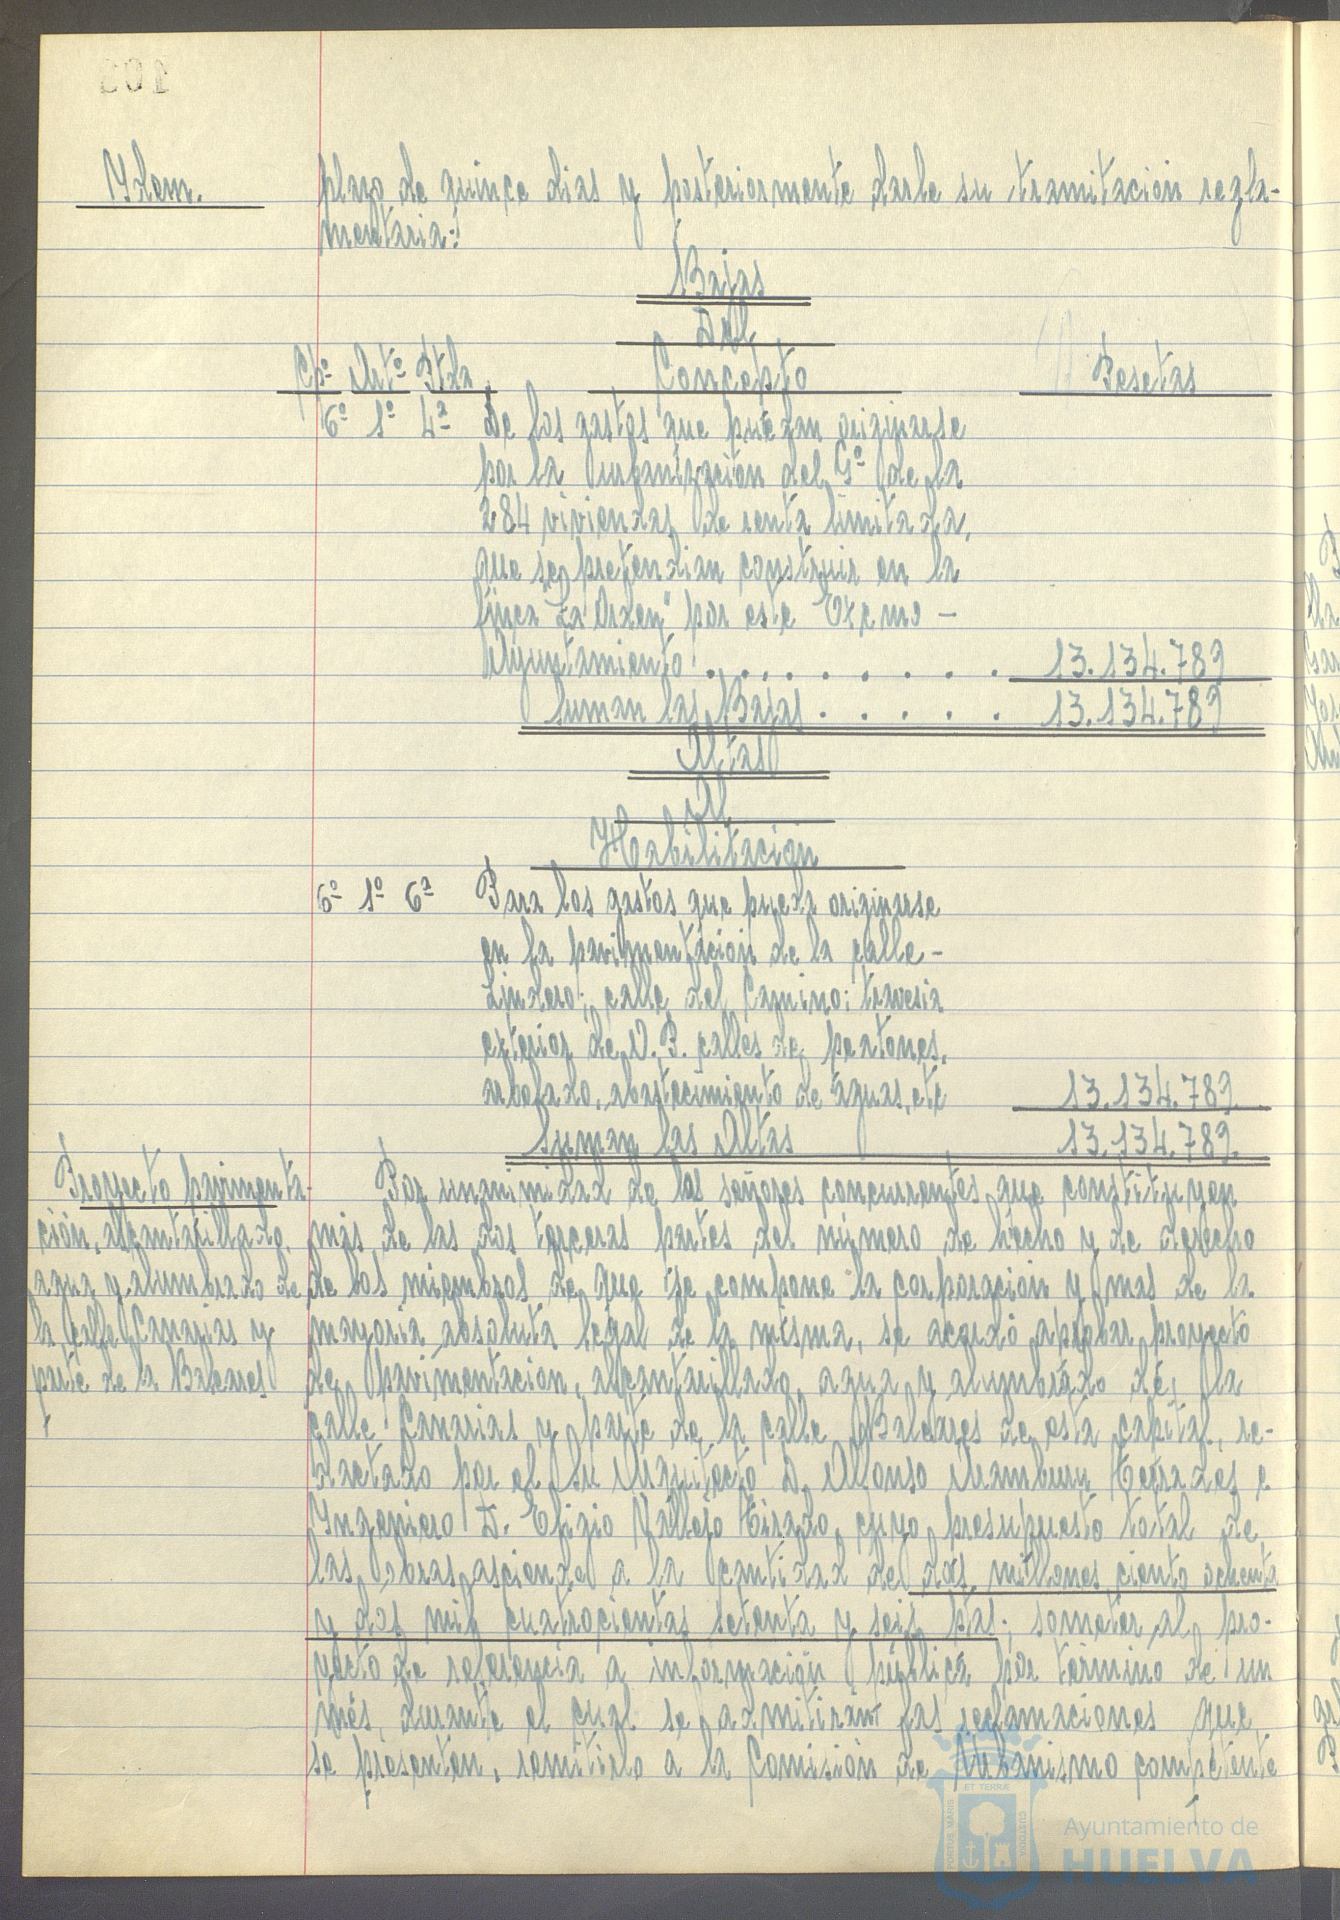 Ydem.
plazo de quince dias y posteriormente darle su tramitación regla-
mentaria:
Bajas
Del
Cpº Artº Ptda Concepto Pesetas
6º 1º 4ª De los gastos que puedan originarse
por la urbanización del Gº de la
284 viviendas de renta limitada,
que se pretendian construir en la
finca "La Orden" por este Excmo -
Ayuntamiento . . . . . . . . . 13.134.789
Suman las Bajas . . . . . 13.134.789
Altas
Al
Habilitación
6º 1º 6ª Para los gastos que pueda originarse
en la pavimentación de la calle -
Lindero; calle del Camino; travesia
exterior de N. B. calles de peatones,
arbolado, abastecimiento de aguas, etc 13.134.789
Suman las Altas 13.134.789.
Proyecto pavimenta-
ción, alcantarillado,
agua y alumbrado de
la calle Canarias y
parte de la Baleares
Por unanimidad de los señores concurrentes que constituyen
más de las dos terceras partes del número de hecho y de derecho
de los miembros de que se compone la corporación y mas de la
mayoria absoluta legal de la misma, se acordó aprobar proyecto
de pavimentación, alcantarillado, agua y alumbrado de la
calle Canarias y parte de la calle Baleares de esta capital, re-
dactado por el Sr Arquitecto D. Alfonso Aramburu Terrades e
Yngeniero D. Eligio Vallejo Tirado, cuyo presupuesto total de
las obras asciende a la cantidad de dos millones ciento ochenta
y dos mil cuatrocientas setenta y seis ptas; someter al pro-
yecto de referencia a información pública por término de un
més, durante el cual se admitirán las reclamaciones que
se presenten, remitirlo a la Comisión de Urbanismo competente
PORTUS MARIS ET TERRÆ CUSTODIA
Ayuntamiento de
HUELVA